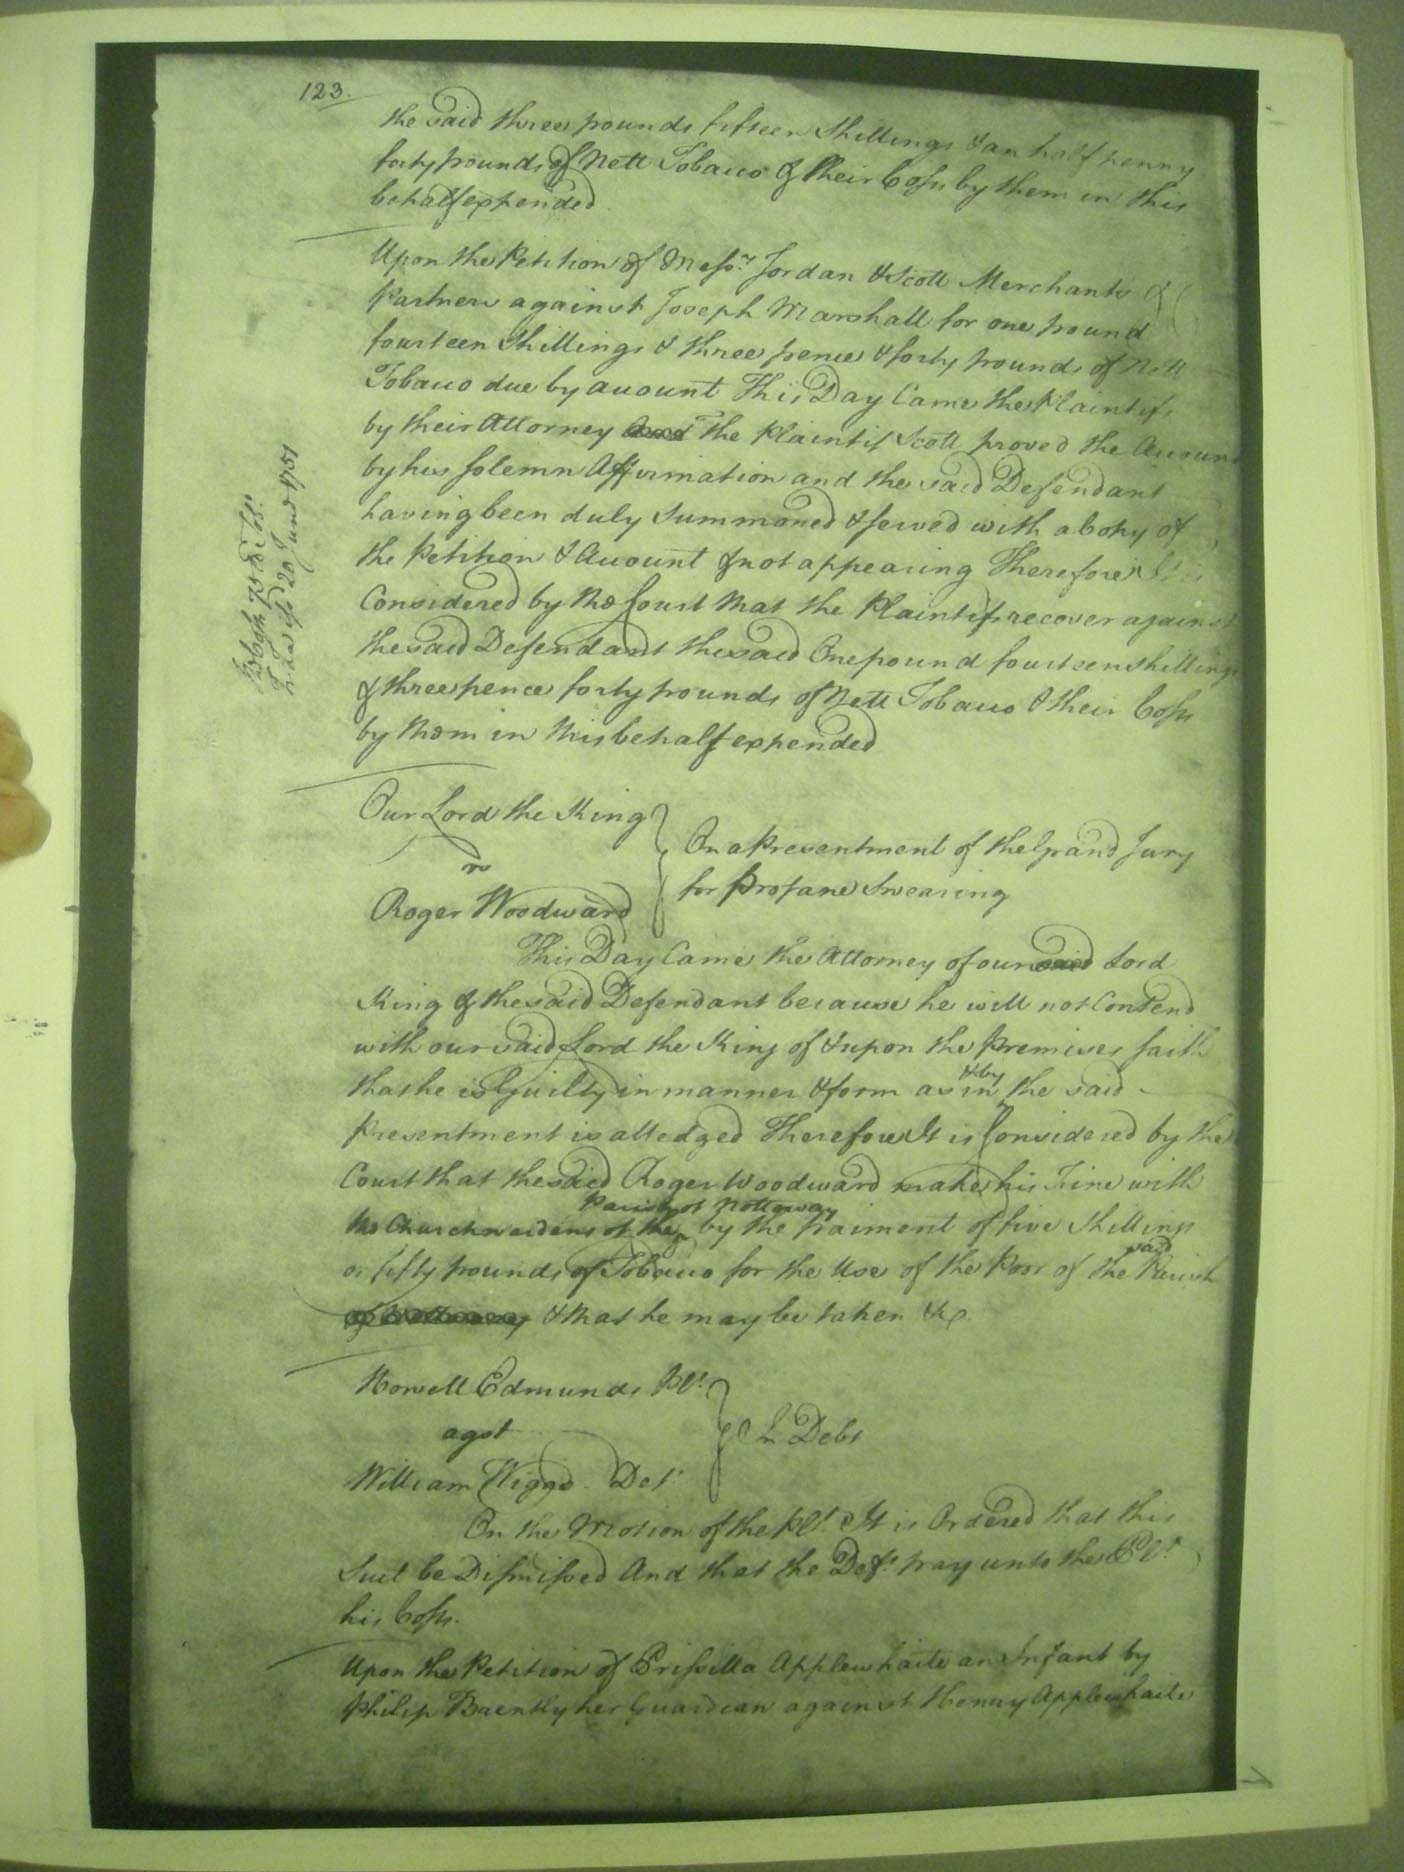 123.
the said three pounds fifteen Shillings & an half penny
forty pounds of Nett Tobacco & their Costs by them in this
behalf expended
Upon the Petition of Messrs. Jordan & Scott Merchants &
Partners against Joseph Marshall for one pound
fourteen Shillings & three pence & forty pounds of Nett
Tobacco due by account This Day Came the Plaintifs
by their Attorney And The Plaintif Scott proved the Account
by his Solemn Affirmation and the said Defendant
having been duly Summoned & served with a Copy of
the Petition & Account & not appearing Therefore It is
Considered by the Court that the Plaintifs recover against
the said Defendant the said One pound fourteen shillings
& three pence forty pounds of Nett Tobacco & their Costs
by them in this behalf expended
20 June 1751
Our Lord the King
vs
Roger Woodward
On a Presentment of the Grand Jury
for Profane Swearing
This Day Came the Attorney of our said Lord
King & the said Defendant because he will not Contend
with our said Lord the King of & upon the Premises saith
that he is Guilty in manner & form as in & by the said
Presentment is alledged Therefore It is Considered by the
Court that the said Roger Woodward make his Fine with
the Churchwardens of the Parish of Nottoway by the Paiment of five Shillings
or fifty pounds of Tobacco for the Use of the Poor of the said Parish
of Nottoway & that he may be taken &c
Howell Edmunds Plt.
agst
William Wiggs Deft.
In Debt
On the Motion of the Plt. It is Ordered that this
Suit be Dismissed And that the Deft. pay unto the Plt.
his Costs.
Upon the Petition of Prissilla Applewhaite an Infant by
Philip Brently her Guardian against Henry Applewhaite